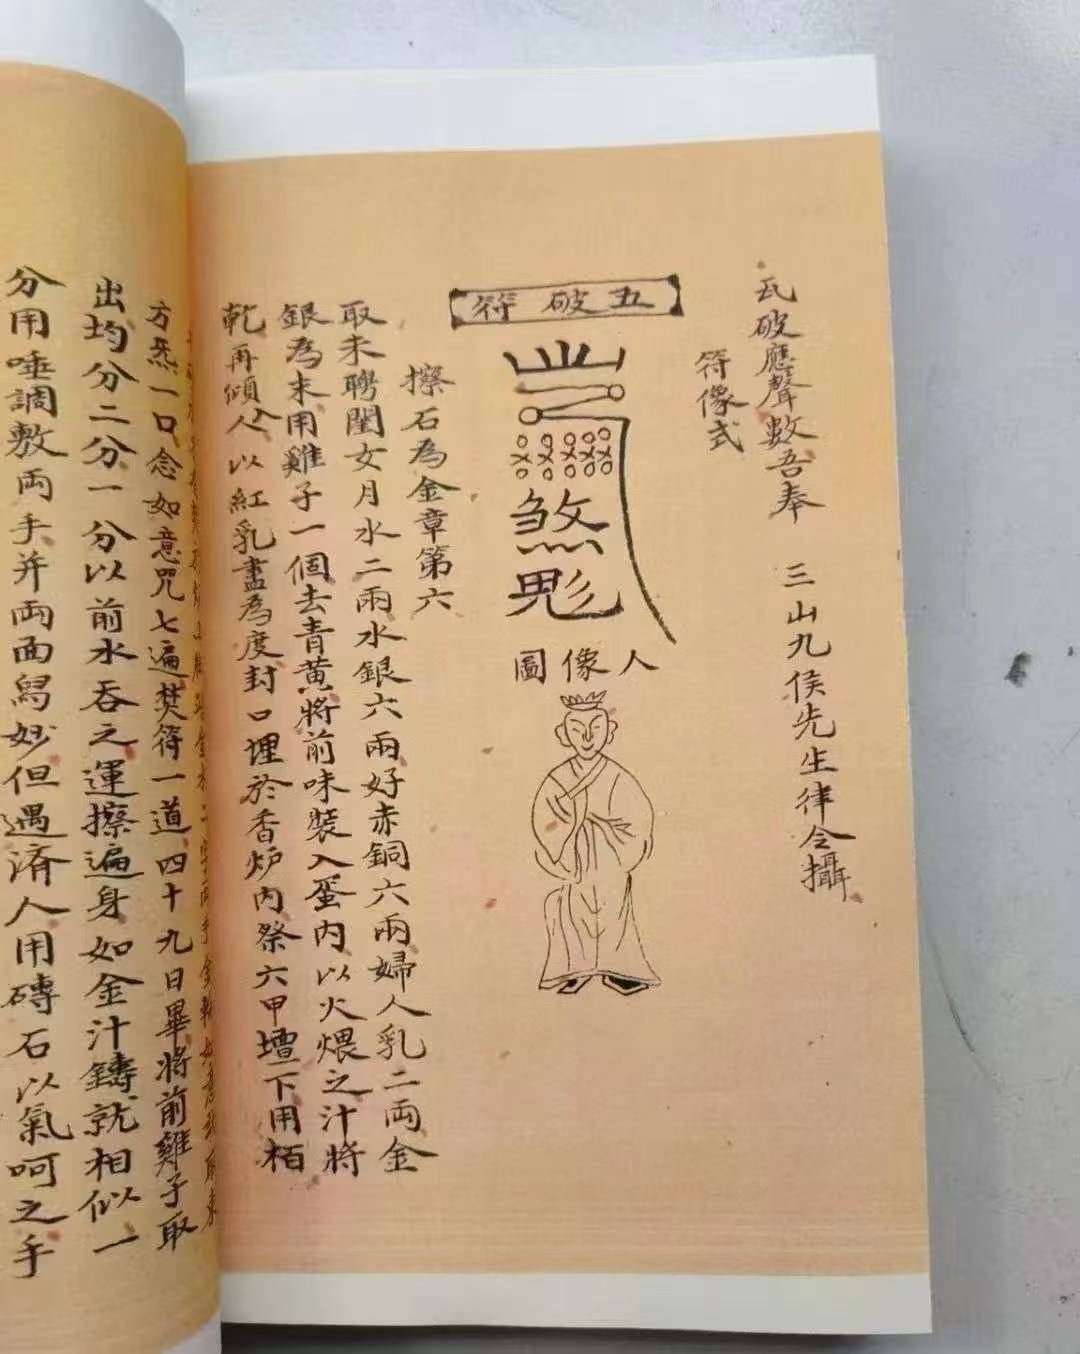 瓦破應聲數吾奉　三山九侯先生律令攝
符像式
五破符
煞
人像圖
擦石為金章第六
取未聘閨女月水二兩水銀六兩好赤銅六兩婦人乳二兩金
銀為末用雞子一個去青黃將前味裝入蛋內以火煨之汁將
乾再傾入以紅乳盡為度封口埋於香炉內祭六甲壇下用栢
方炁一口念如意咒七遍焚符一道四十九日畢將前雞子取
出均分二分一分以前水吞之運擦遍身如金汁鑄就相似一
分用唾調敷両手并両面為妙但遇済人用磚石以氣呵之手